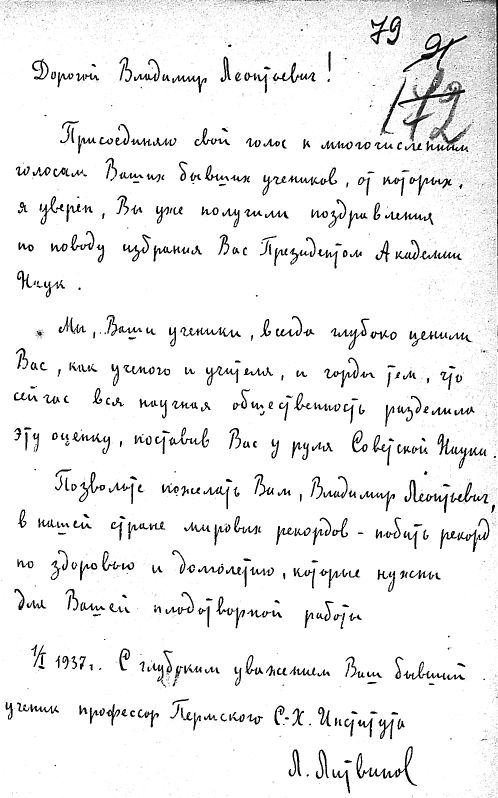 79
91
172
Дорогой Владимир Леонтьевич!
Присоединяю свой голос к многочисленным
голосам Ваших бывших учеников, от которых,
я уверен, Вы уже получили поздравления
по поводу избрания Вас Президентом Академии
Наук.
Мы, Ваши ученики, всегда глубоко ценили
Вас, как ученого и учителя, и горды тем, что
сейчас вся научная общественность разделила
эту оценку, поставив Вас у руля Советской Науки.
Позвольте пожелать Вам, Владимир Леонтьевич,
в нашей стране мировых рекордов - побить рекорд
по здоровью и долголетию, которые нужны
для Вашей плодотворной работы
1/I 1937г. С глубоким уважением Ваш бывший
ученик профессор Пермского С-Х. Института
Л. Литвинов